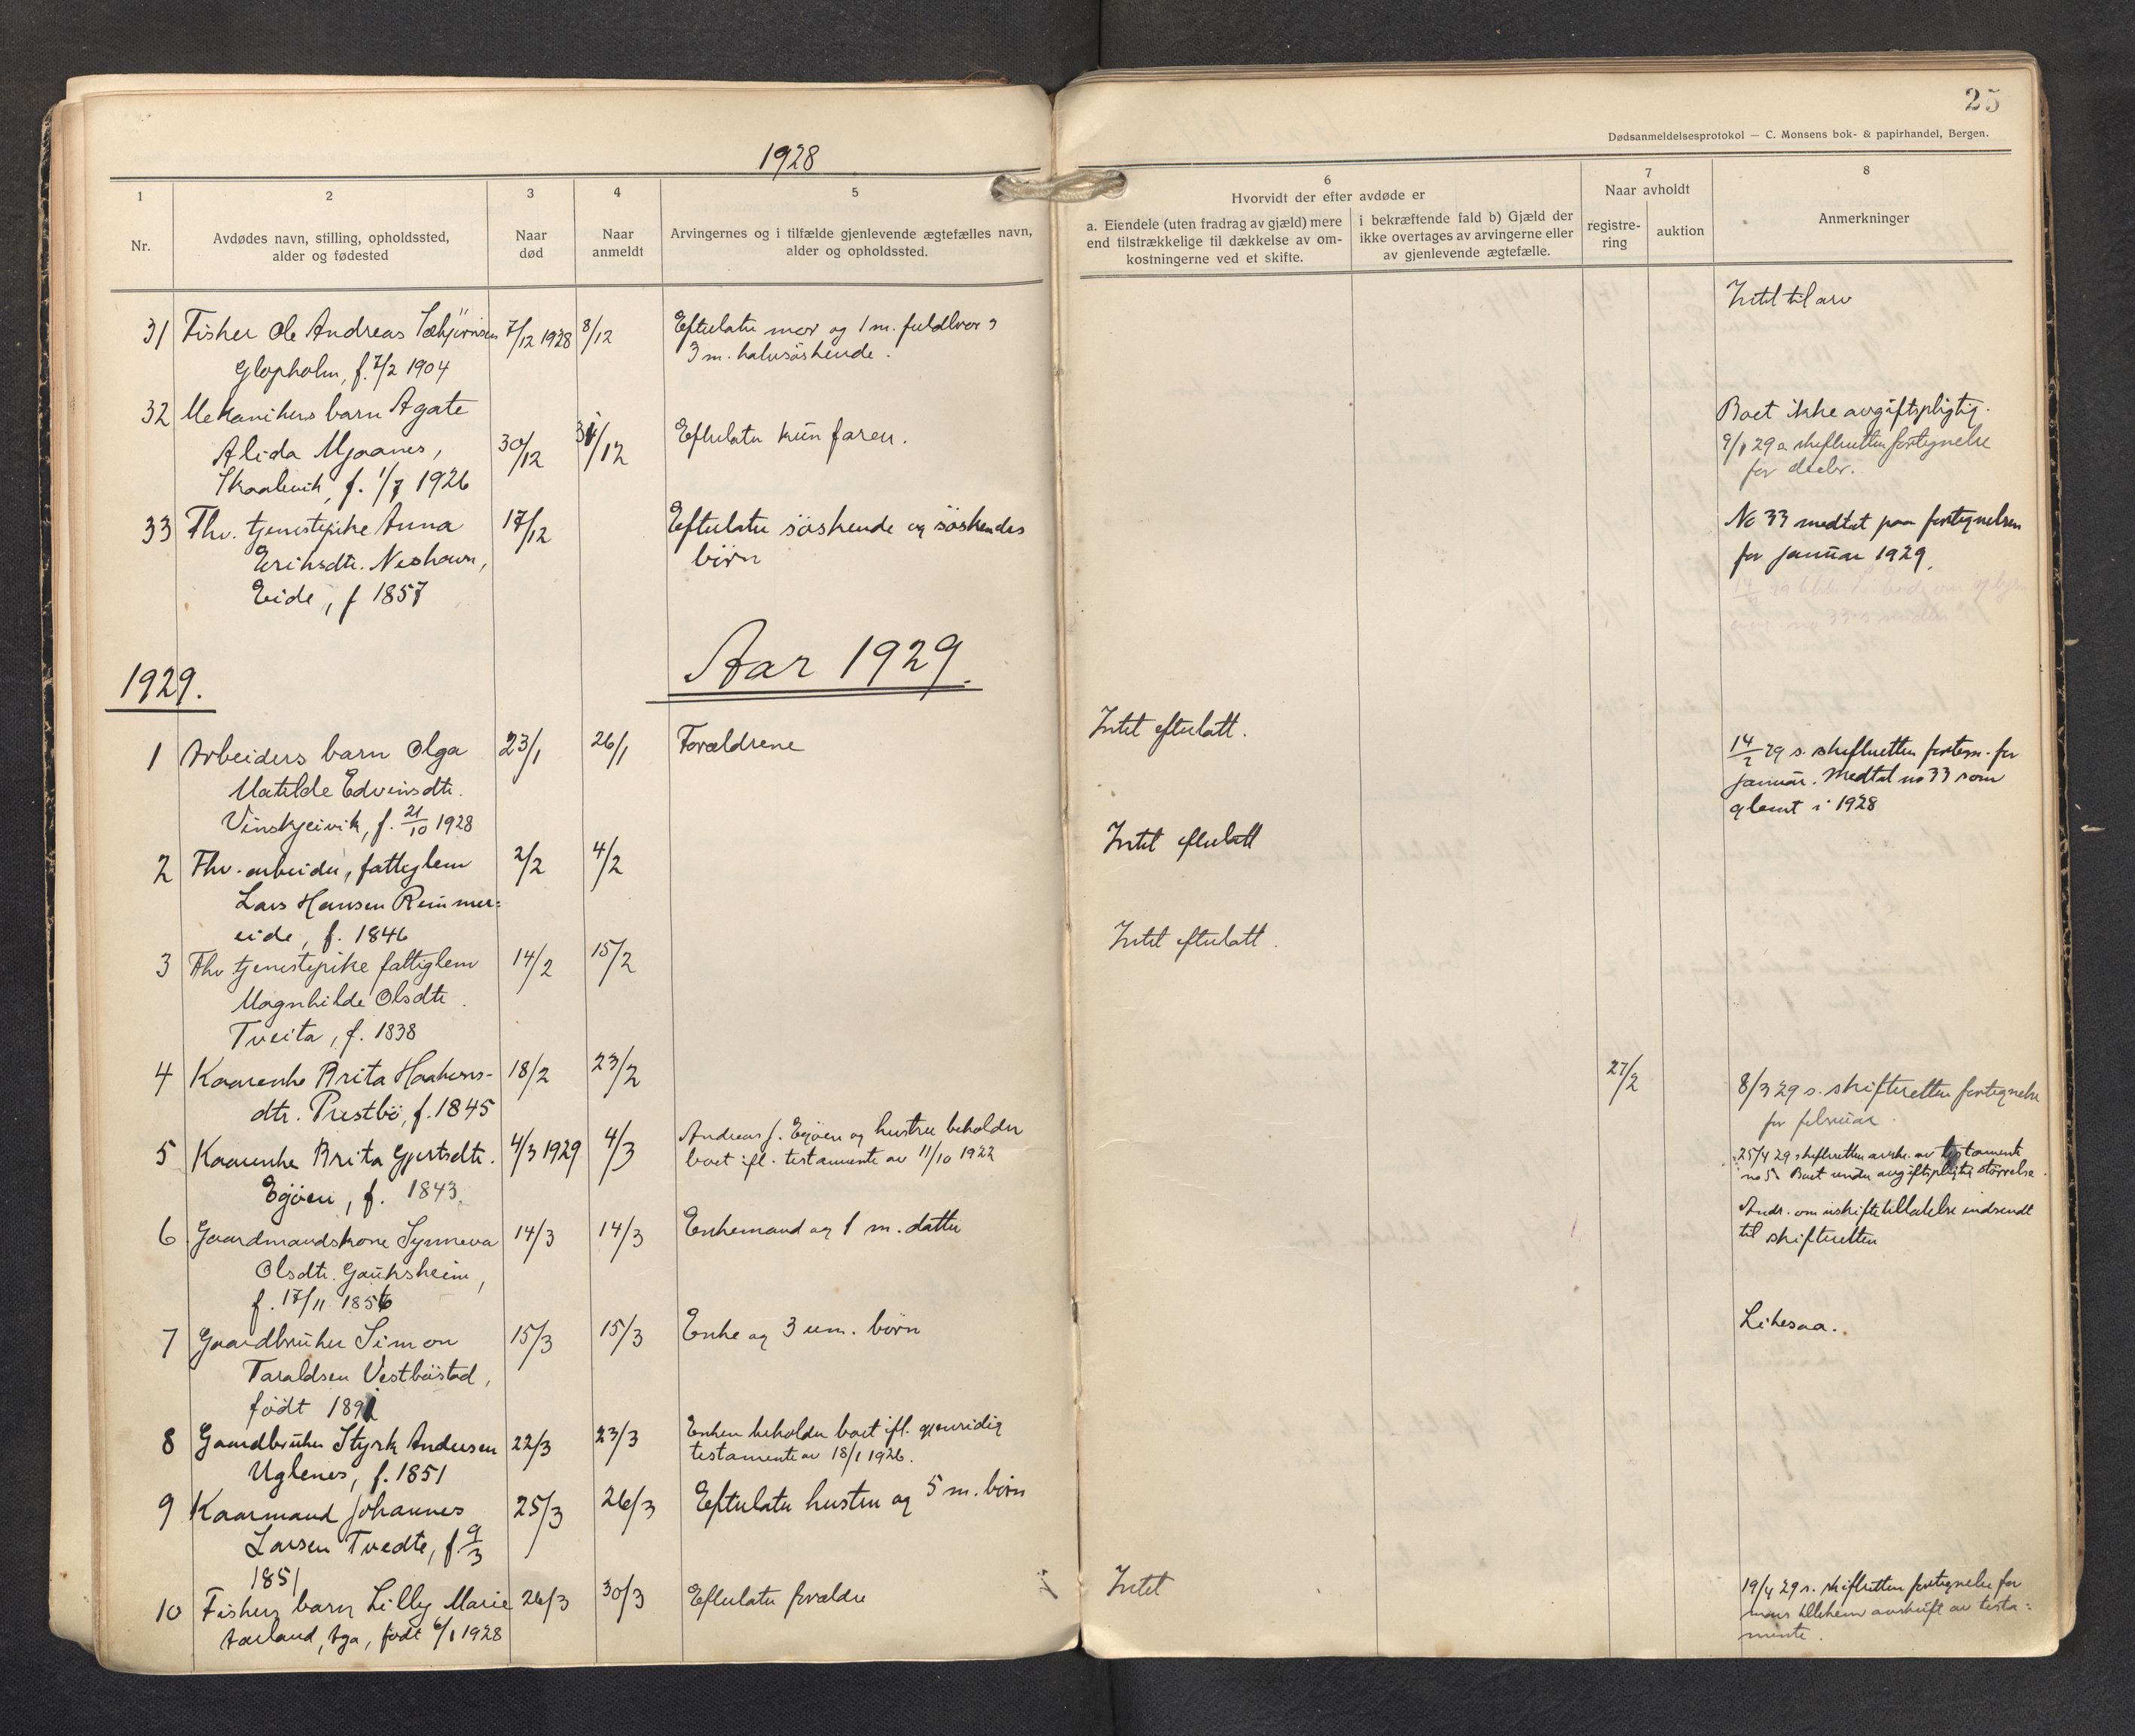 25
Dødsanmeldelsesprotokol — C. Monsens bok- & papirhandel, Bergen.
1928
1
2
3
4
5
6
7
8
Nr.
Avdødes navn, stilling, opholdssted,
alder og fødested
Naar
død
Naar
anmeldt
Arvingernes og i tilfælde gjenlevende ægtefælles navn,
alder og opholdssted.
Hvorvidt der efter avdøde er
a. Eiendele (uten fradrag av gjæld) mere
end tilstrækkelige til dækkelse av om-
kostningerne ved et skifte.
i bekræftende fald b) Gjæld der
ikke overtages av arvingerne eller
av gjenlevende ægtefælle.
Naar avholdt
registre-
ring
auktion
Anmerkninger
31 Fisker Ole Andreas 7/12 1928 8/12 Efterlater mor og 1 m. fuldbror &
Glopholm, f. 7/2 1904 3 m. halvsöskende.
Intet til arv
32 Mekanikers barn Agate
Alida Mjaanes, 30/12 31/12 Efterlater kun faren.
Skaalevik, f. 1/7 1926
Boet ikke avgiftspligtig.
9/1 29 s. skifteretten fortegnelse
for decbr.
33 Fhv. tjenestepike Anna 17/12 Efterlater söskende og söskendes
Eriksdtr. Neshavn, börn
Eide, f 1857
No 33 medtat paa fortegnelsen
for januar 1929.
1929.
Aar 1929.
1 Arbeiders barn Olga 23/1 26/1 Forældrene
Matilde Edvinsdtr.
Vinskjeivik, f. 21/10 1928
Intet efterlatt.
14/2 29 s. skifteretten fortegn. for
januar. Medtat no 33 som
glemt i 1928
2 Fhv. arbeider, fattiglem 2/2 4/2
Lars Hansen Rimmer-
eide, f. 1846
Intet efterlatt
3 Fhv tjenestepike fattiglem 14/2 15/2
Magnhilde Olsdtr.
Tveita, f. 1838
Intet efterlatt.
4 Kaarenke Brita Haakons- 18/2 23/2
dtr. Prestbö, f. 1845
27/2
8/3 29 s. skifteretten fortegnelse
for februar.
5 Kaarenke Brita Gjertsdtr. 4/3 1929 4/3 Andreas J. Egöen og hustru beholder
Egöen, f. 1843. boet ifl. testamente av 11/10 1922
25/4 29 skifteretten avskr. av testamente
no 5. Boet under avgiftspligtig störrelse.
6 Gaardmandskone Synneva 14/3 14/3 Enkemand og 1 m. datter
Olsdtr. Gauksheim,
f. 17/11 1856
Andr. om uskiftetilladelse indsendt
til skifteretten
7 Gaardbruker Simon 15/3 15/3 Enke og 3 um. börn
Taraldsen Vestböstad,
födt 1891
Likesaa.
8 Gaardbruker Styrk Andersen 22/3 23/3 Enken beholder boet ifl. gjensidig
Uglenes, f. 1851 testamente av 18/1 1926.
9 Kaarmand Johannes 25/3 26/3 Efterlater hustru og 5 m. börn
Larsen Tvedte, f. 9/3
1851
10 Fiskers barn Lilly Marie 26/3 30/3 Efterlater forældre
Aarland, Aga, födt 6/1 1928
Intet
19/4 29 s. skifteretten fortegnelse for
mars tillikem avskrift av testa-
mente.